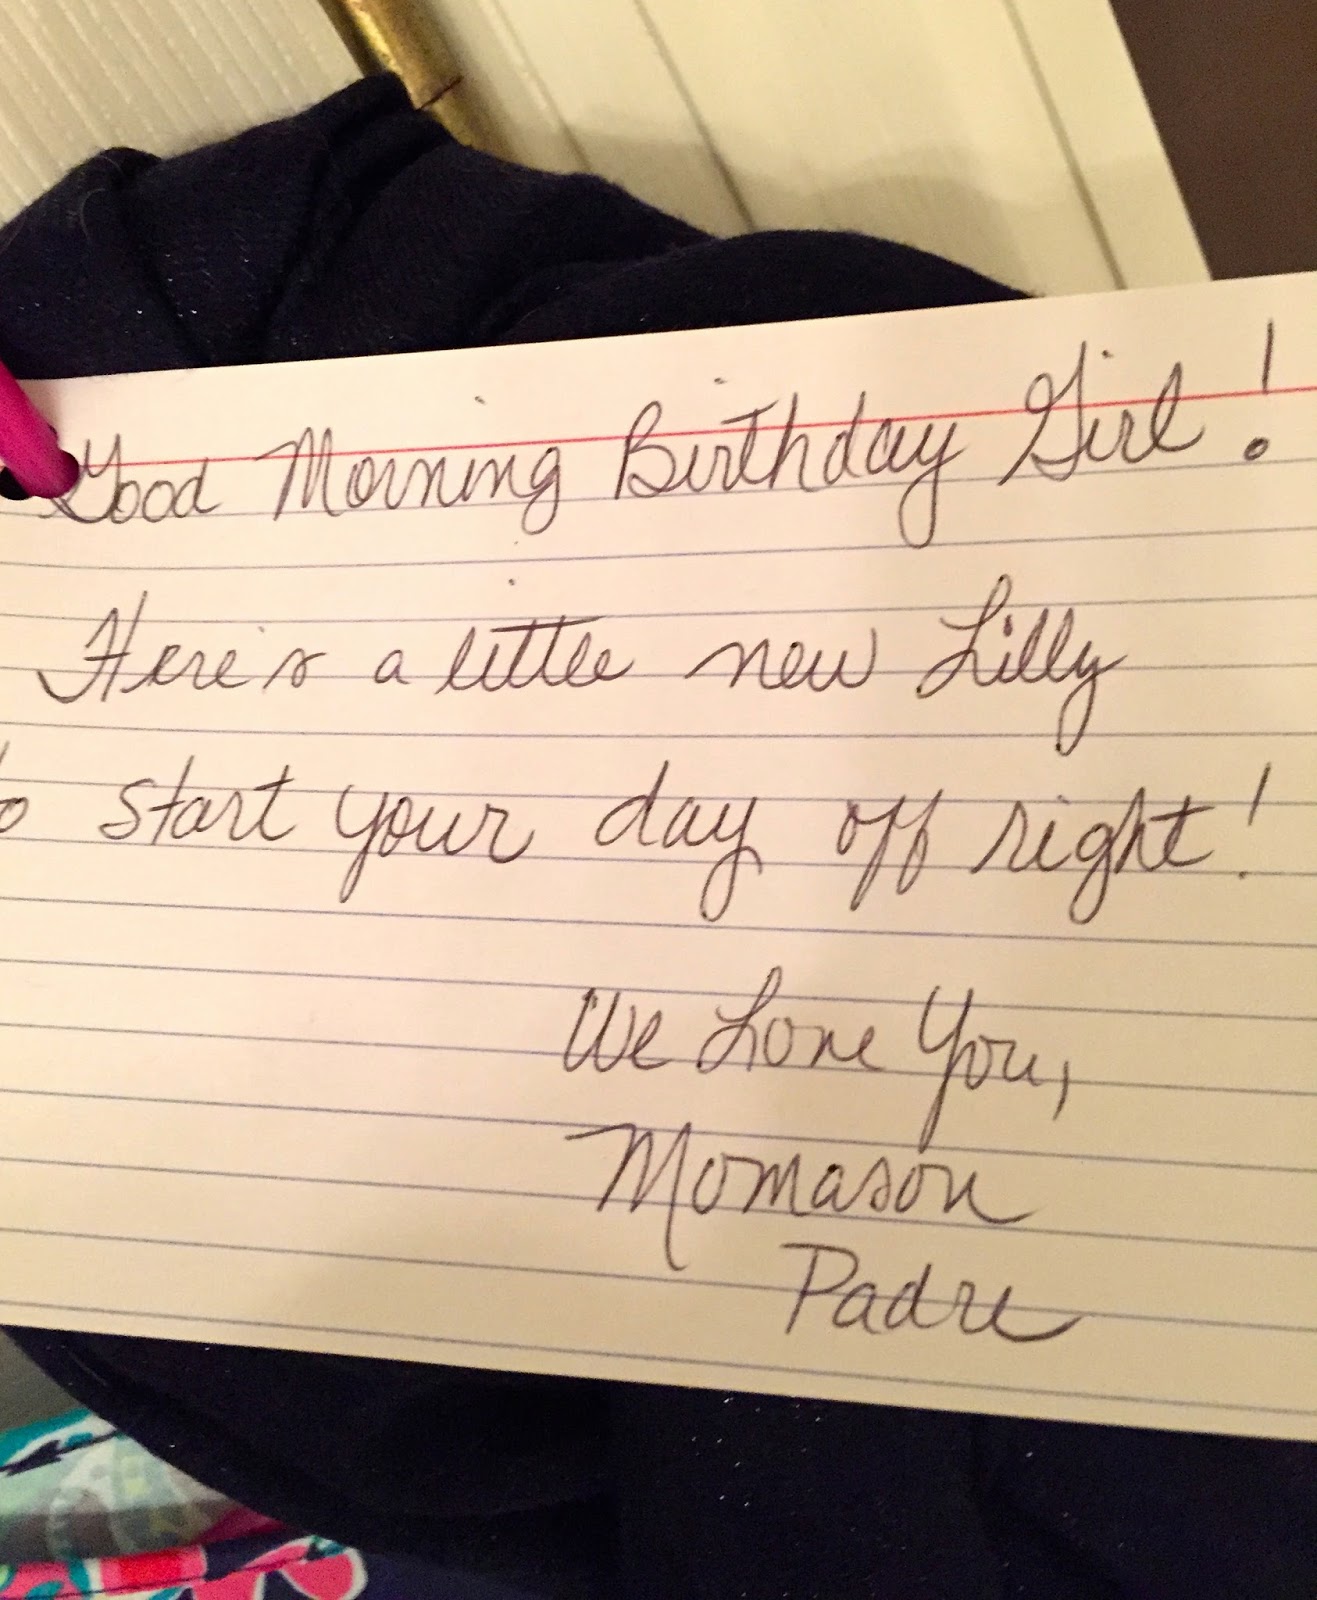 Good Morning Birthday Girl!
Here's a little new Lilly
to start your day off right!
We Love You,
Momason
Padre